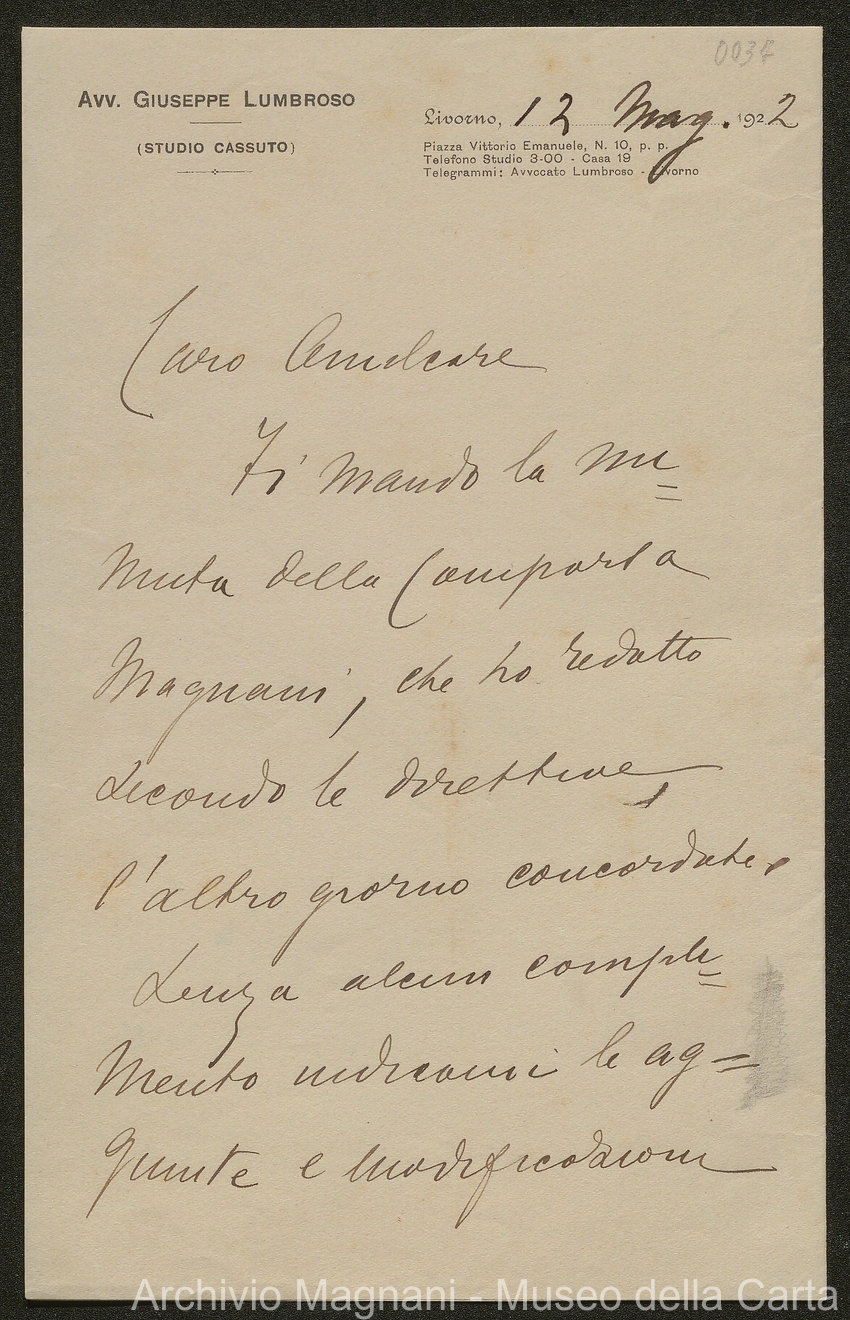 0037
AVV. GIUSEPPE LUMBROSO
(STUDIO CASSUTO)
Livorno, 12 Mag. 1922
Piazza Vittorio Emanuele, N. 10, p. p.
Telefono Studio 3-00 - Casa 19
Telegrammi: Avvocato Lumbroso - Livorno
Caro Amilcare
Ti mando la mi=
nuta della Comparsa
Magnani, che ho redatto
secondo le direttive,
l'altro giorno concordate.
Senza alcun compli=
mento indicami le ag=
giunte e modificazioni
Archivio Magnani - Museo della Carta